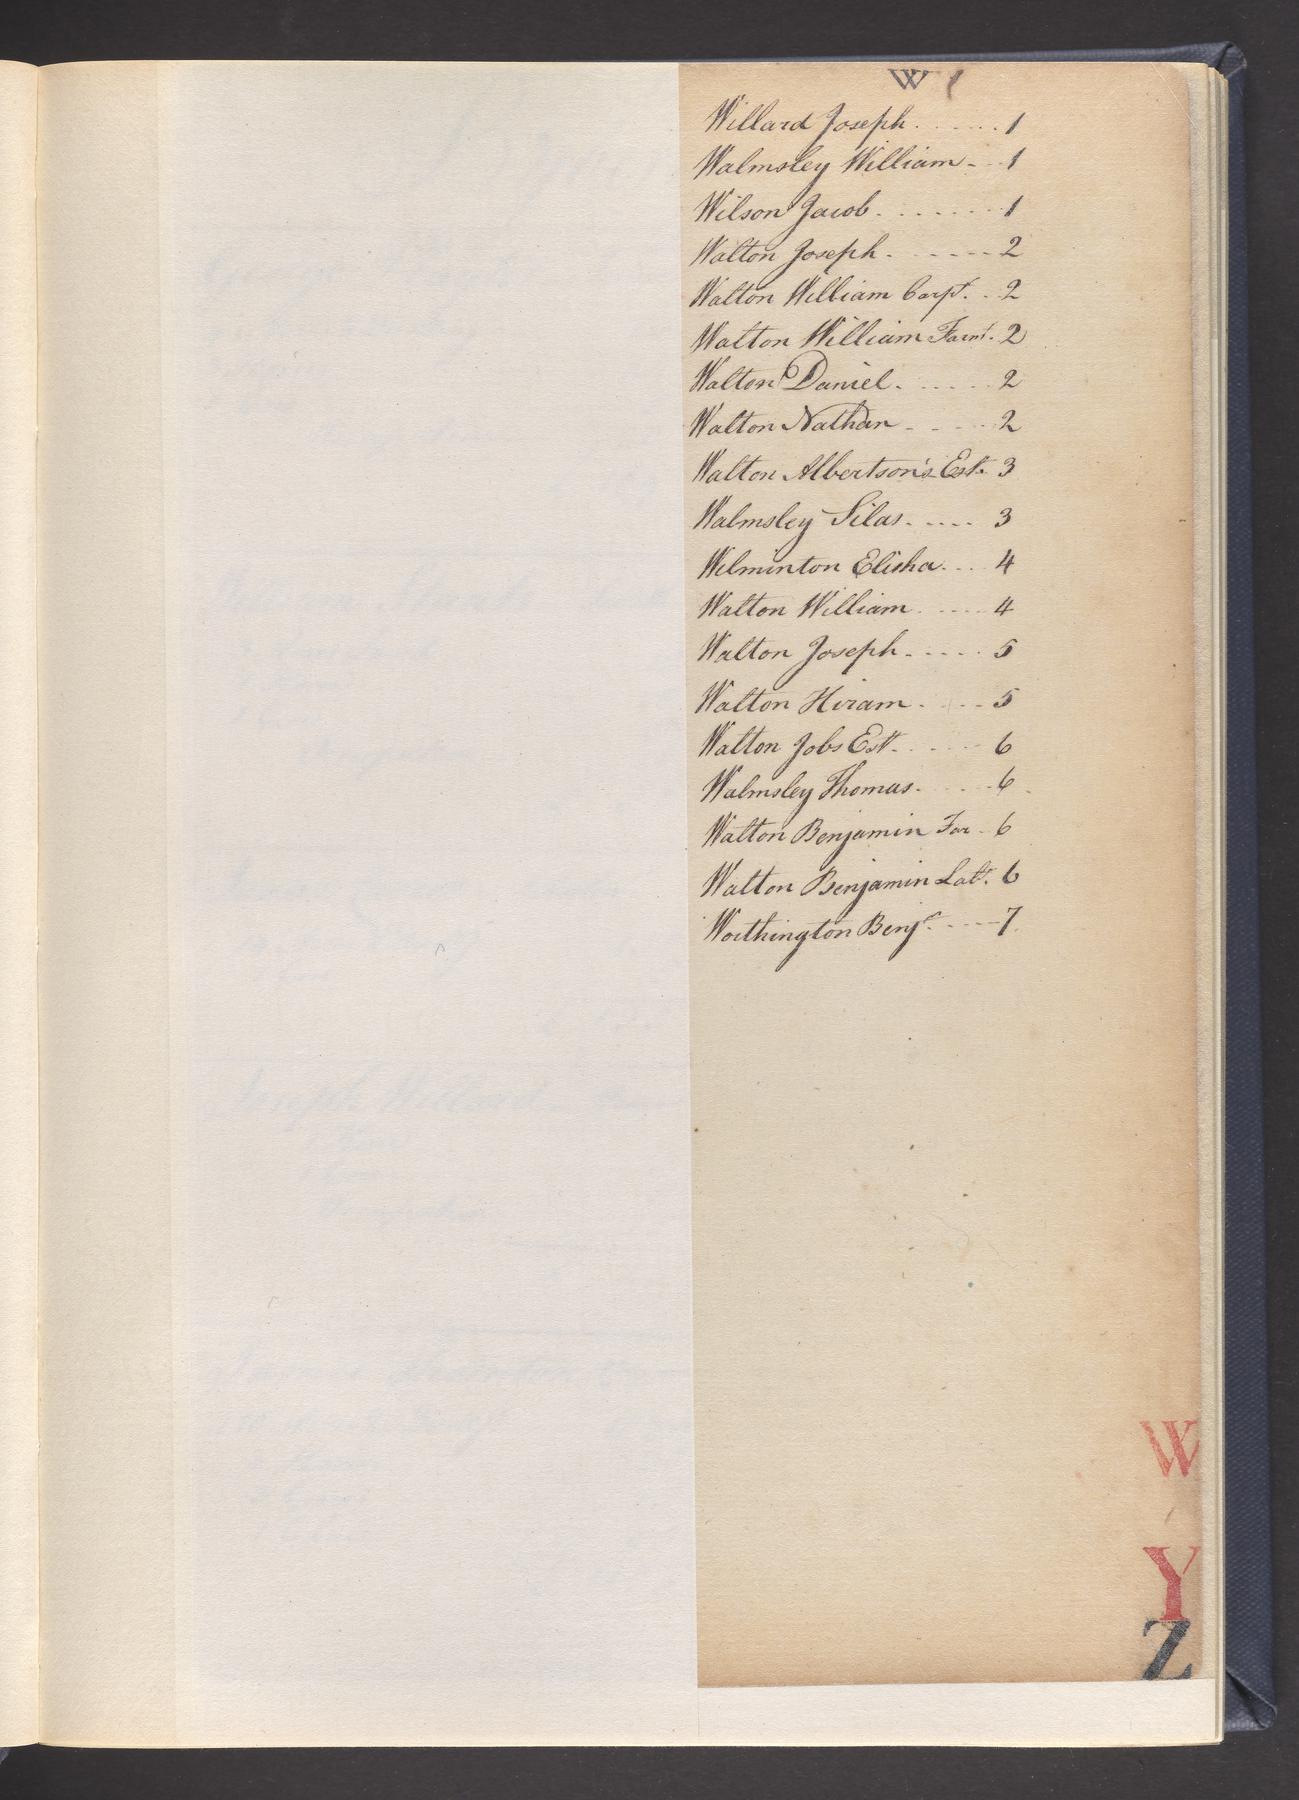 W
Willard Joseph. . . . . . . 1
Walmsley William - . . 1
Wilson Jacob. . . . . . . . 1
Walton Joseph. . - - - - - 2
Walton William Carpt. . . 2
Walton William Farmr. 2
Walton Daniel. . . . . . . 2
Walton Nathan - - - - - 2
Walton Albertson's Est. 3
Walmsley Silas. - - - - 3
Wilminton Elisha. . . . 4
Walton William . . . . . 4
Walton Joseph - - - - . . 5
Walton Hiram . . . - - 5
Walton Jobs Est. . . . . . 6
Walmsley Thomas. . . . . . 6
Walton Benjamin Far - 6
Walton Benjamin Lat. 6
Worthington Benj. . - - - 7
W
Y
Z